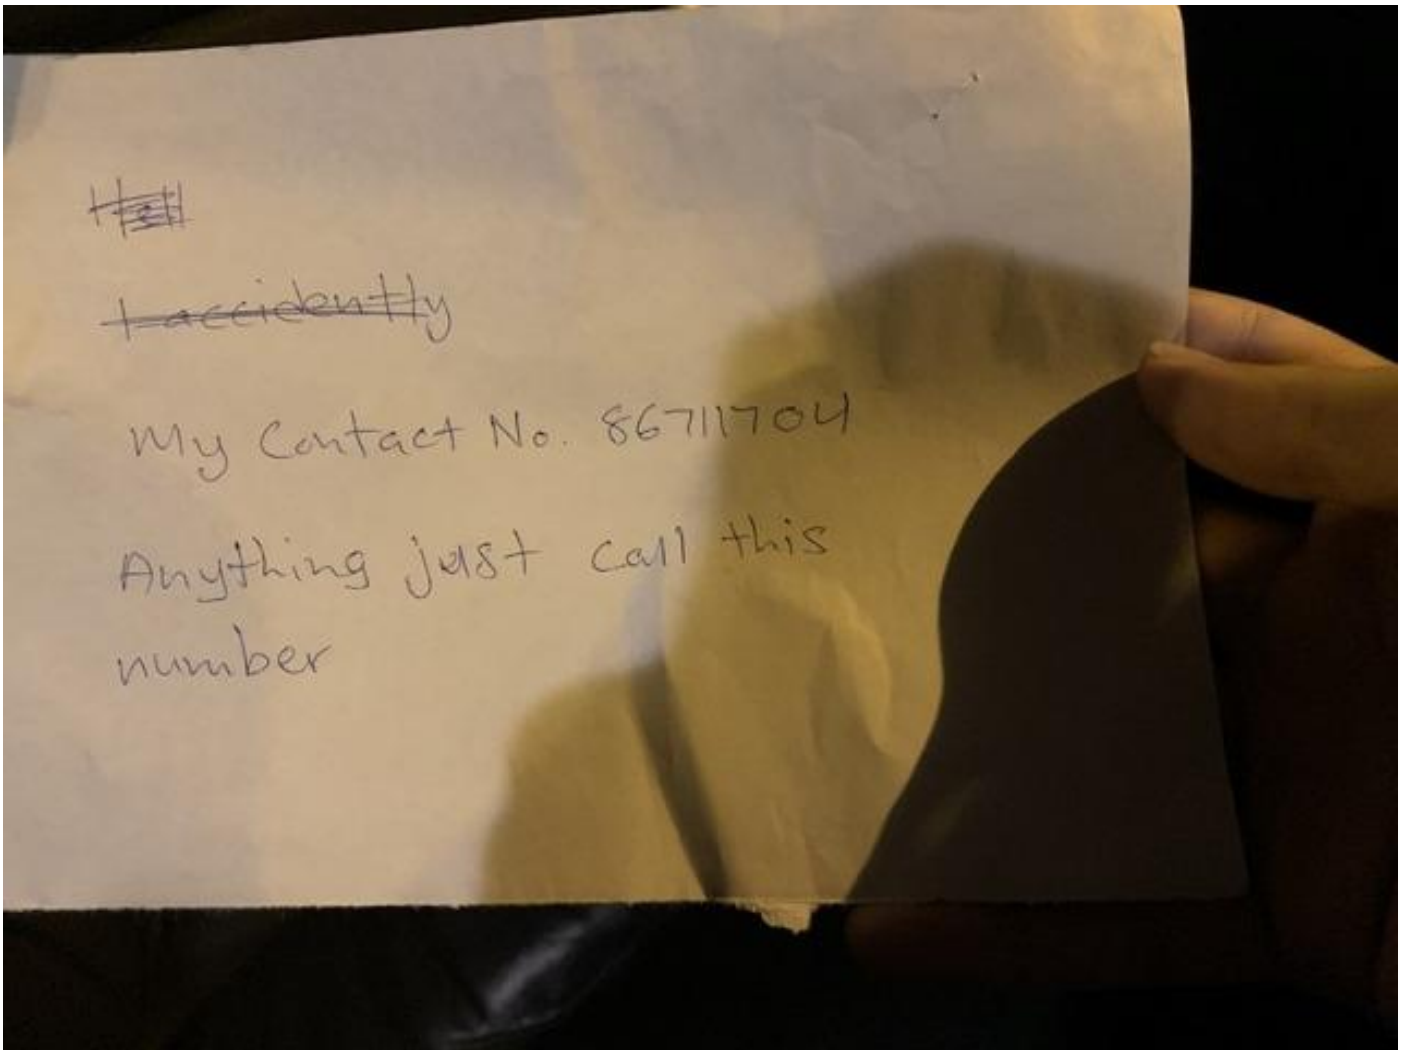 I accidently
My Contact No. 86711704
Anything just call this
number